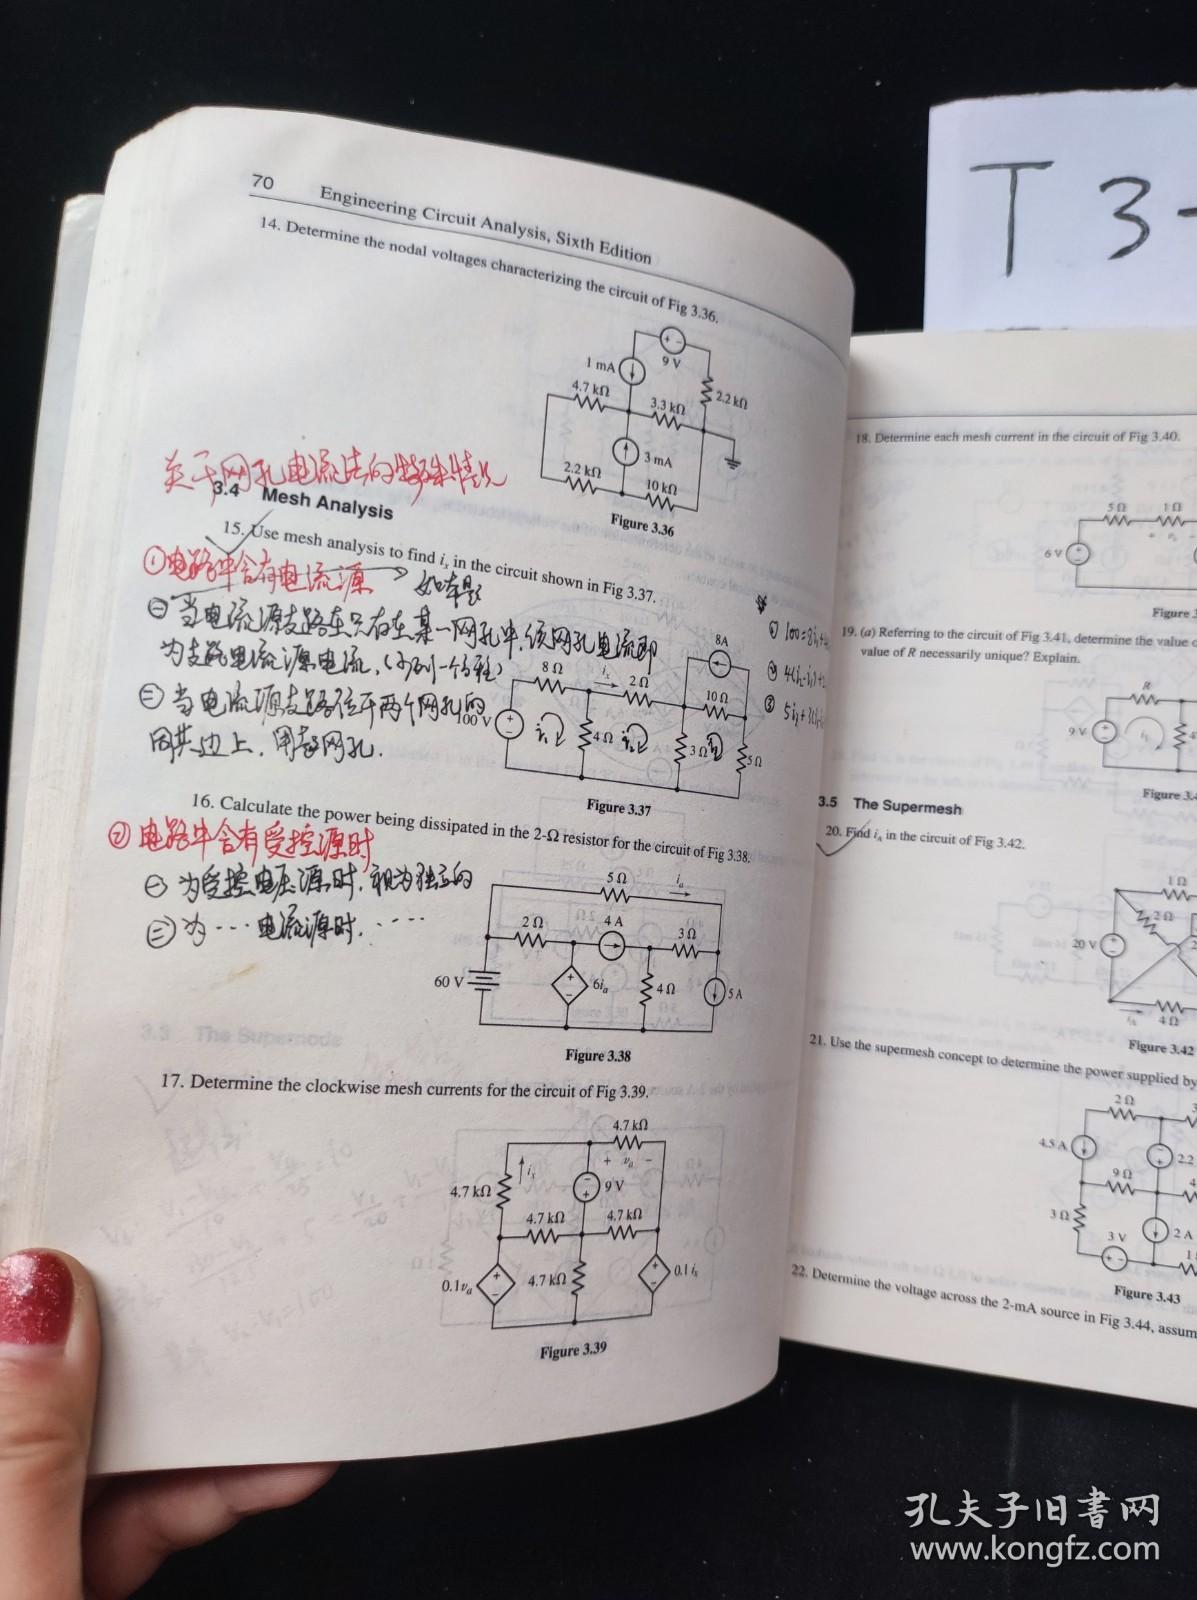 70 Engineering Circuit Analysis, Sixth Edition
14. Determine the nodal voltages characterizing the circuit of Fig 3.36.
1 mA
9 V
4.7 kΩ
3.3 kΩ
2.2 kΩ
3 mA
2.2 kΩ
10 kΩ
Figure 3.36
关于网孔电流法的特殊情况
3.4 Mesh Analysis
15. Use mesh analysis to find ix in the circuit shown in Fig 3.37.
①电路中含有电流源
如本题
㊀当电流源支路在只存在某一网孔中,该网孔电流即
为支路电流源电流,(少列一个方程)
㊁当电流源支路位于两个网孔的
同共边上,用超网孔.
① 100=8i₁+4
② 4(i₂-i₁)+2
③ 5i₃+3(i₃-i
8 Ω
ix
2 Ω
8 A
10 Ω
100 V
i₁
4 Ω
i₂
3 Ω
i₃
5 Ω
Figure 3.37
16. Calculate the power being dissipated in the 2-Ω resistor for the circuit of Fig 3.38.
②电路中含有受控源时
㊀为受控电压源时,视为独立的
㊁为…电流源时,……
5 Ω
ia
2 Ω
4 A
3 Ω
60 V
6ia
4 Ω
5 A
Figure 3.38
17. Determine the clockwise mesh currents for the circuit of Fig 3.39.
4.7 kΩ
ix
+ va −
4.7 kΩ
9 V
4.7 kΩ
4.7 kΩ
0.1va
4.7 kΩ
0.1 ix
Figure 3.39
T 3-
18. Determine each mesh current in the circuit of Fig 3.40.
5 Ω
1 Ω
6 V
Figure 3
19. (a) Referring to the circuit of Fig 3.41, determine the value o
value of R necessarily unique? Explain.
R
9 V
Figure 3.4
3.5 The Supermesh
20. Find iA in the circuit of Fig 3.42.
1 Ω
2 Ω
20 V
4 Ω
Figure 3.42
21. Use the supermesh concept to determine the power supplied by
2 Ω
4.5 A
2.2
9 Ω
3 Ω
3 V
2 A
Figure 3.43
22. Determine the voltage across the 2-mA source in Fig 3.44, assum
孔夫子旧书网
www.kongfz.com